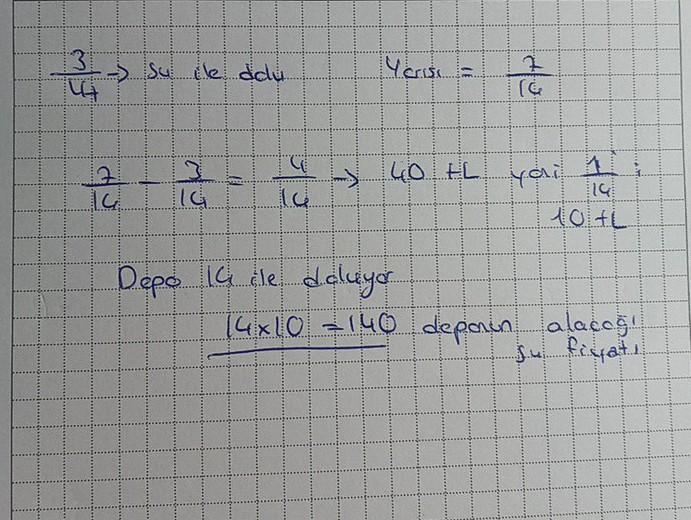 3/14 → su ile dolu Yarısı = 7/14
7/14 - 3/14 = 4/14 → 40 tL yani 1/14 i
10 tL
Depo 14 ile doluyor
14x10 = 140 deponun alacağı
su fiyatı